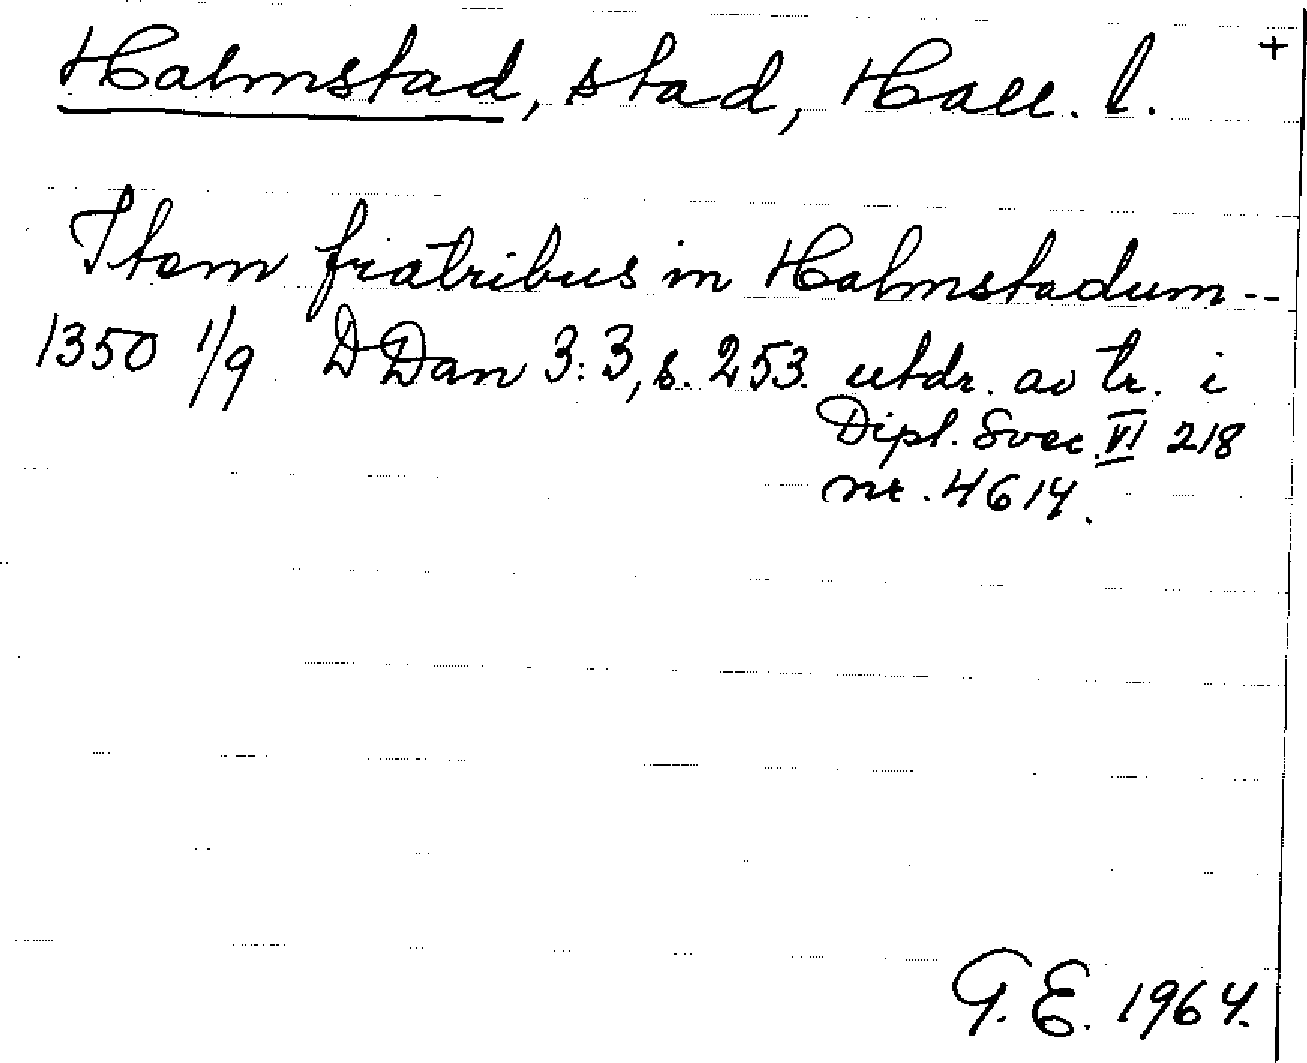 Halmstad, stad, Hall. l. +
Item fratribus in Halmstadum --
1350 1/9 DDan 3:3, s. 253. utdr. av tr. i
Dipl. Svec. VI 218
nr. 4614.
G. E. 1964.